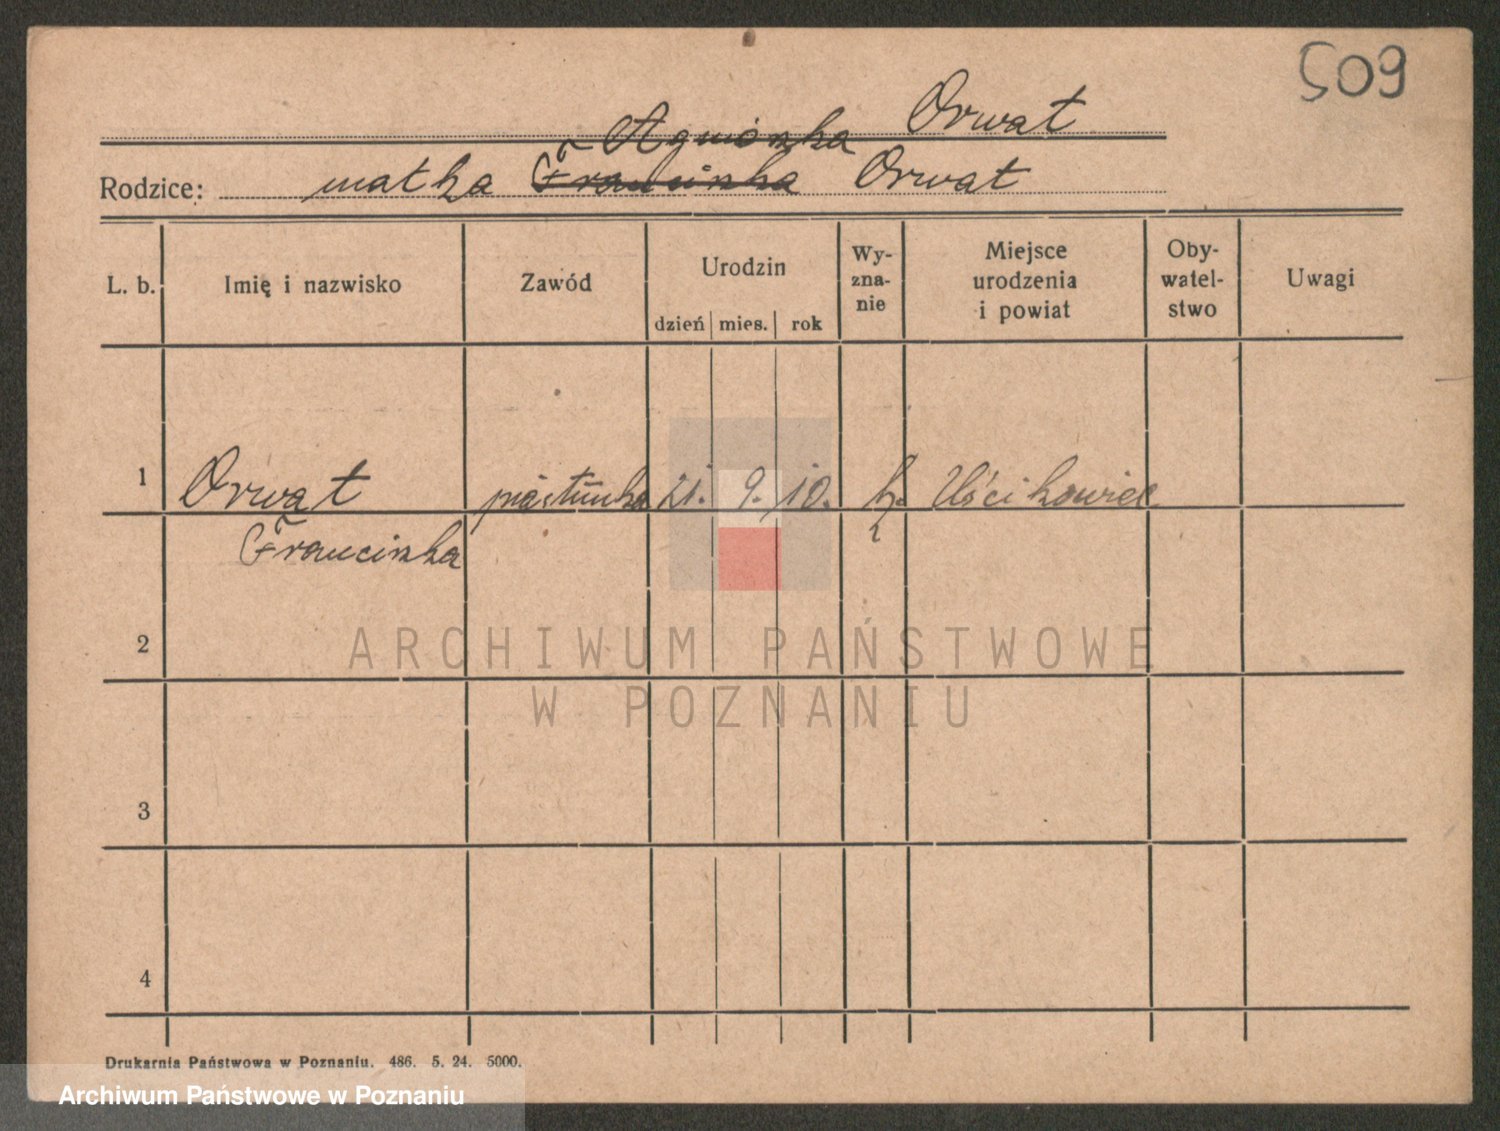 509
Agnieszka Orwat
Rodzice: matka Franciszka Orwat
L. b. Imię i nazwisko Zawód Urodzin dzień mies. rok Wy-zna-nie Miejsce urodzenia i powiat Oby-watel-stwo Uwagi
1 Orwat piastunka 21. 9. 10. k. Uścikowiec
Franciszka
2
3
4
ARCHIWUM PAŃSTWOWE
W POZNANIU
Drukarnia Państwowa w Poznaniu. 486. 5. 24. 5000.
Archiwum Państwowe w Poznaniu